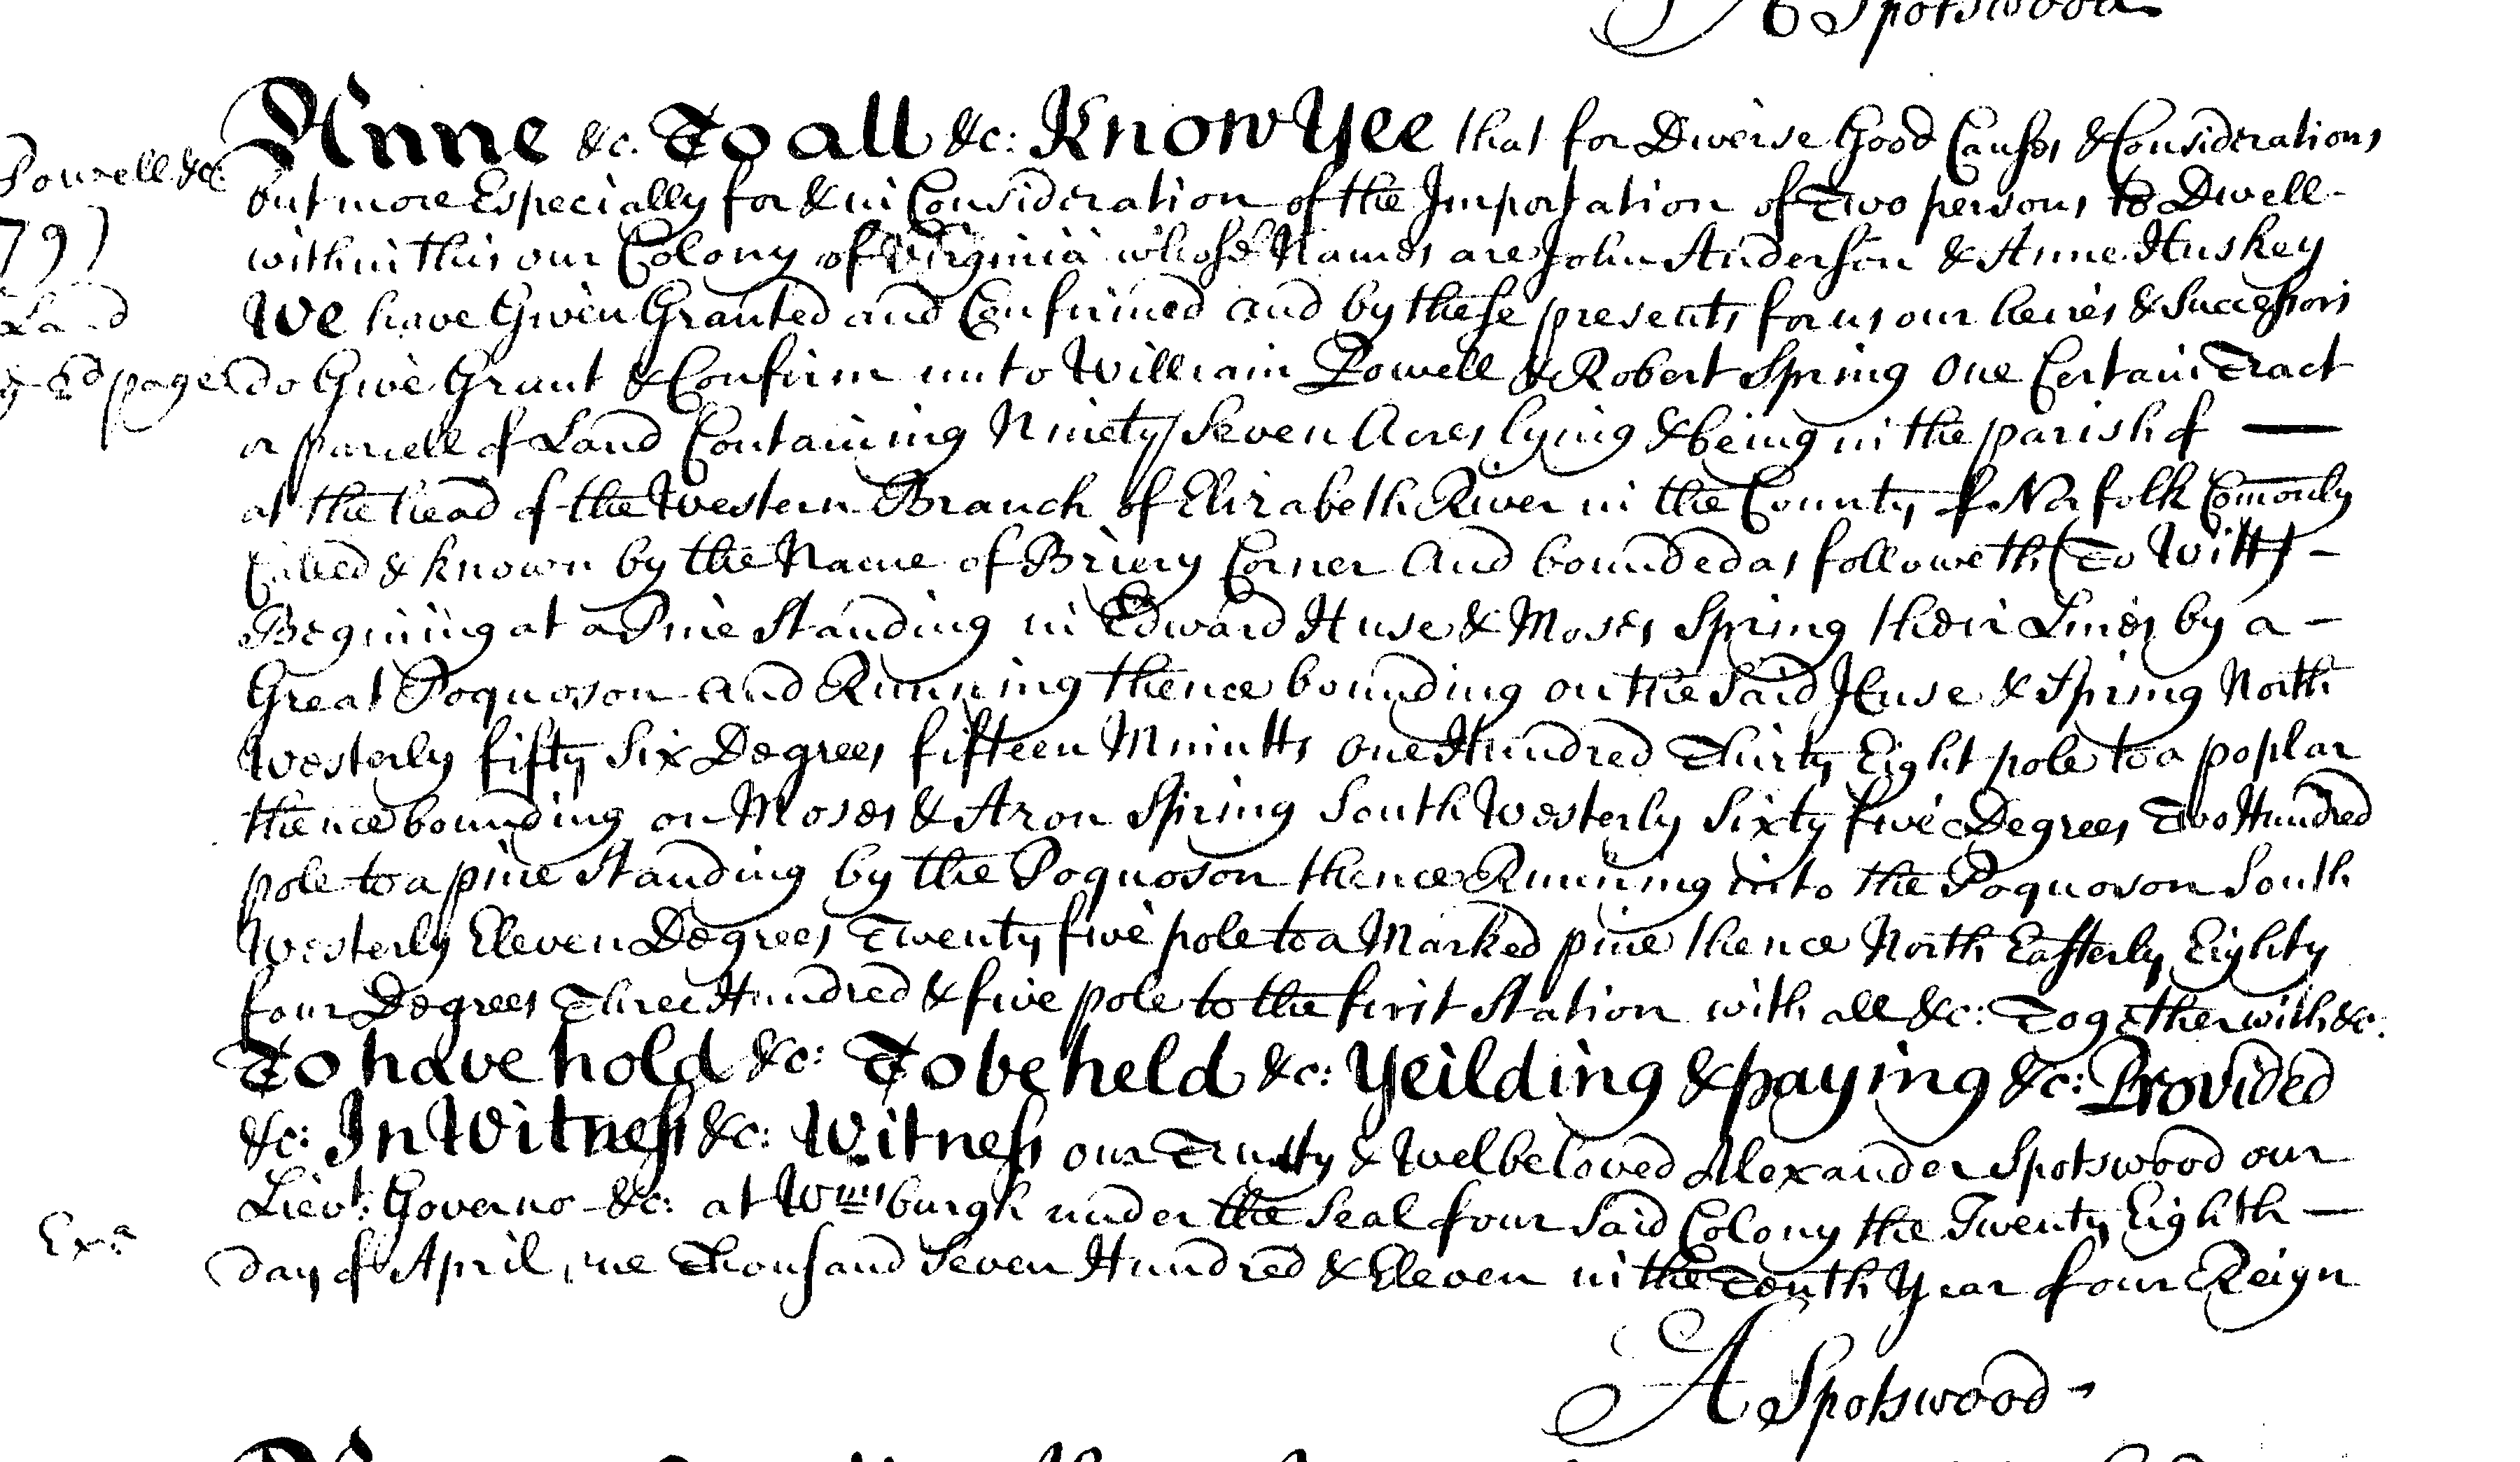 A Spotswood
Anne &c. To all &c: Know Yee that for Diverse Good Causes & Considerations
Powell &c:
but more Especially for & in Consideration of the Importation of Two persons to Dwell-
within this our Colony of Virginia whose Names are John Anderson & Anne Huskey
797
We have Given Granted and Confirmed and by these presents for us our heires & Successors
Land
do Give Grant & Confirm unto William Powell & Robert Spring One Certain Tract
page
or parcell of Land Containing Ninety Seven Acres lying & being in the parish of —
at the head of the Western Branch of Elizabeth River in the County of Norfolk Comonly
Called & known by the Name of Briery Corner And bounded as followeth (To Witt) -
Begining at a Pine Standing in Edward Huse & Moses Spring their Lines by a -
Great Poquoson and Running thence bounding on the Said Huse & Spring North
Westerly fifty Six Degrees fifteen Minutts One Hundred Thirty Eight pole to a poplar
thence bounding on Moses & Aron Spring South Westerly Sixty five Degrees Two Hundred
pole to a pine Standing by the Poquoson thence Running into the Poquoson South
Westerly Eleven Degrees Twenty five pole to a Marked pine thence North Easterly Eighty
four Degrees Three Hundred & five pole to the first Station with all &c: Together with &c.
To have hold &c: To be held &c: Yeilding & paying &c: Provided
&c: In Witness &c: Witness our Trusty & Welbeloved Alexander Spotswood our
Lievt: Governo &c: at Wmsburgh under the Seal of our Said Colony the Twenty Eighth —
Exa
day of April one Thousand Seven Hundred & Eleven in the Tenth Year of our Reign
A Spotswood -